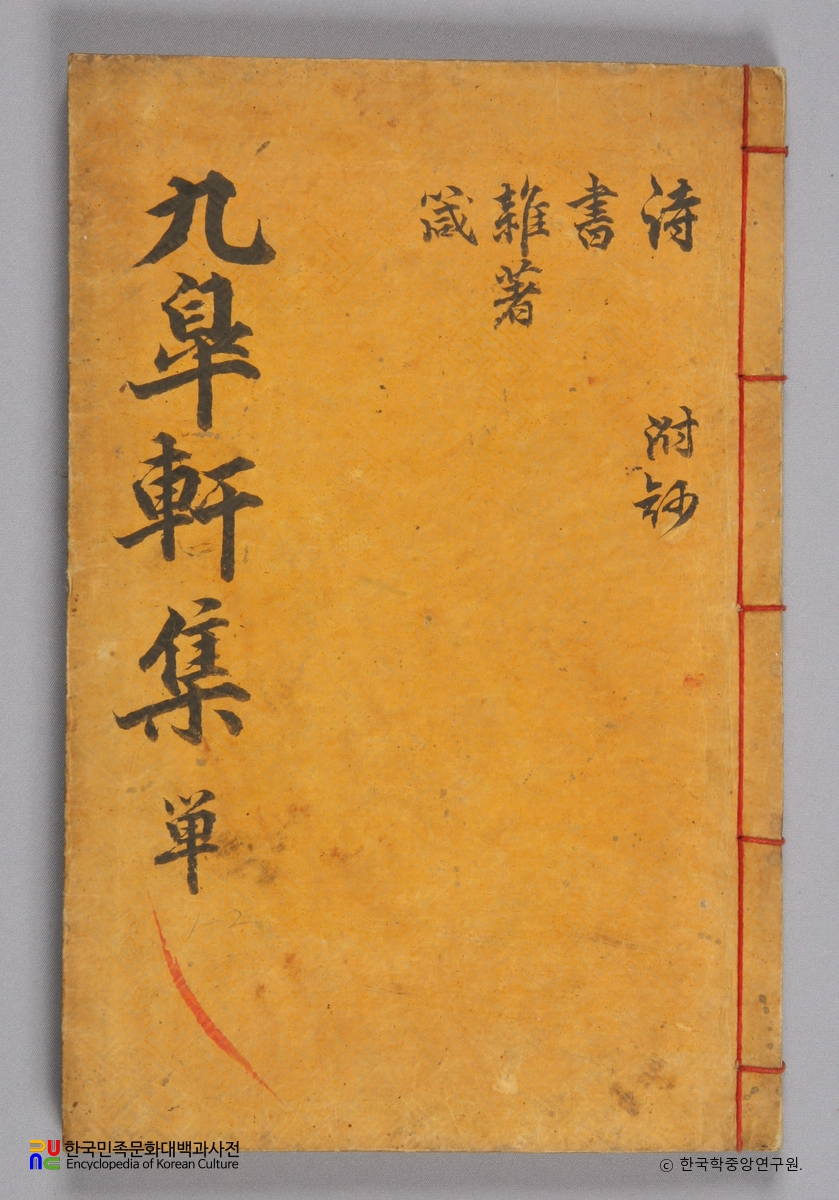 詩
附鈔
書
雜著
箴
九臯軒集 单
1-2
한국민족문화대백과사전
Encyclopedia of Korean Culture
ⓒ 한국학중앙연구원.